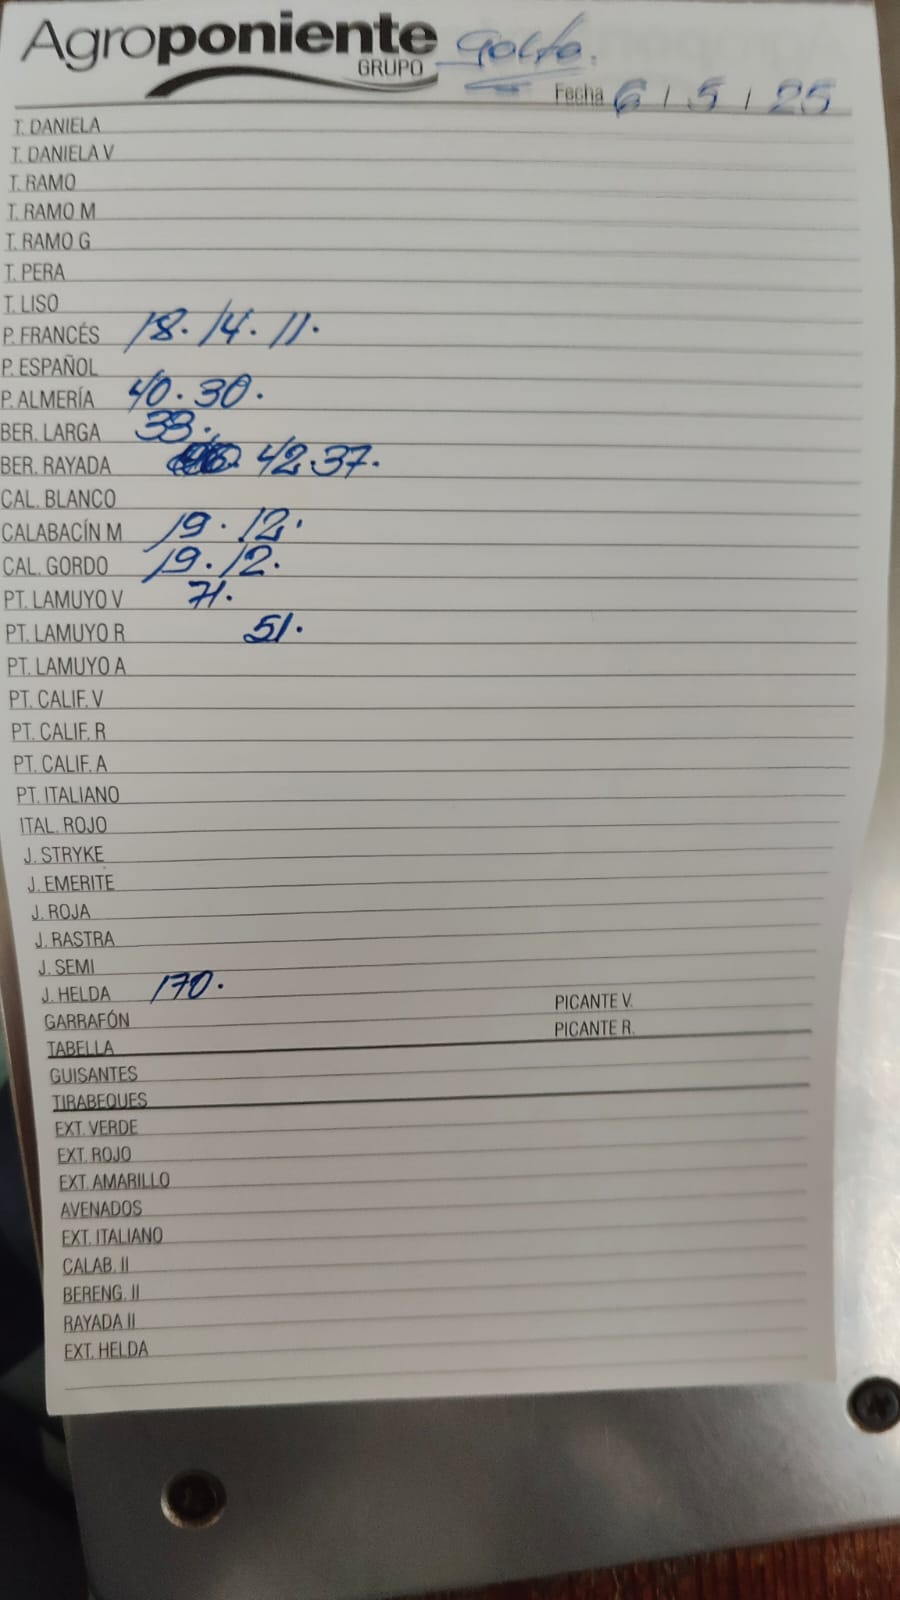 Agroponiente Golfo.
GRUPO
Fecha 6 / 5 / 25
T. DANIELA
T. DANIELA V
T. RAMO
T. RAMO M
T. RAMO G
T. PERA
T. LISO
P. FRANCÉS 18. 14. 11.
P. ESPAÑOL
P. ALMERÍA 40. 30.
BER. LARGA 33.
BER. RAYADA 42. 37.
CAL. BLANCO
CALABACÍN M 19. 12.
CAL. GORDO 19. 12.
PT. LAMUYO V 71.
PT. LAMUYO R 51.
PT. LAMUYO A
PT. CALIF. V
PT. CALIF. R
PT. CALIF. A
PT. ITALIANO
ITAL. ROJO
J. STRYKE
J. EMERITE
J. ROJA
J. RASTRA
J. SEMI
J. HELDA 170.
GARRAFÓN PICANTE V.
TABELLA PICANTE R.
GUISANTES
TIRABEQUES
EXT. VERDE
EXT. ROJO
EXT. AMARILLO
AVENADOS
EXT. ITALIANO
CALAB. II
BERENG. II
RAYADA II
EXT. HELDA